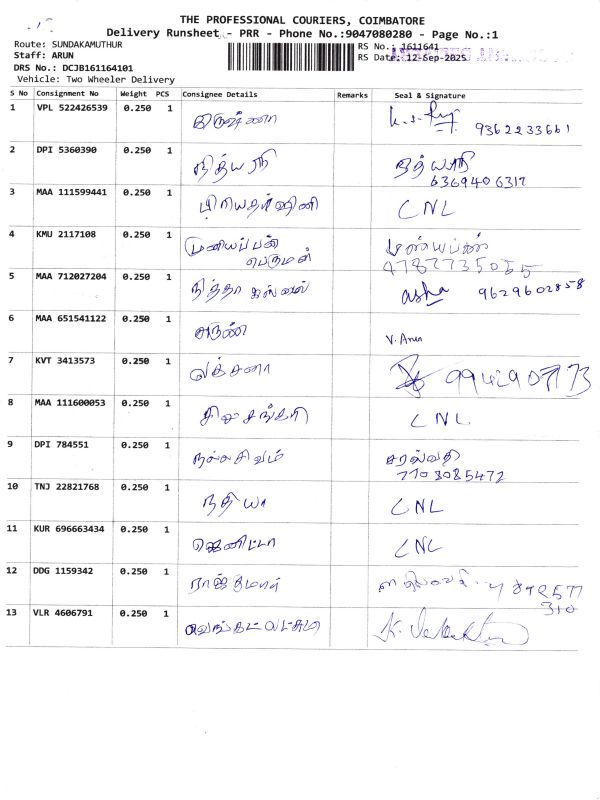 THE PROFESSIONAL COURIERS, COIMBATORE
Delivery Runsheet - PRR - Phone No.:9047080280 - Page No.:1
Route: SUNDAKAMUTHUR
Staff: ARUN
DRS No.: DCJB161164101
Vehicle: Two Wheeler Delivery
RS No.: 1611641
RS Date: 12-Sep-2025
S No Consignment No Weight PCS Consignee Details Remarks Seal & Signature
1 VPL 522426539 0.250 1 9362233661
2 DPI 5360390 0.250 1 நித்யஸ்ரீ
6369406317
3 MAA 111599441 0.250 1 பிரியதர்ஷினி CNL
4 KMU 2117108 0.250 1 முனியப்பன்
பெருமாள்
5 MAA 712027204 0.250 1 நித்தா asha 9629602858
6 MAA 651541122 0.250 1 அருண் V. Arun
7 KVT 3413573 0.250 1
8 MAA 111600053 0.250 1 சிவசங்கரி CNL
9 DPI 784551 0.250 1 நல்லசிவம் சரஸ்வதி
7703085472
10 TNJ 22821768 0.250 1 நதியா CNL
11 KUR 696663434 0.250 1 ஜெனிட்டா CNL
12 DDG 1159342 0.250 1 ராஜ்குமார்
13 VLR 4606791 0.250 1 வெங்கட்லட்சுமி